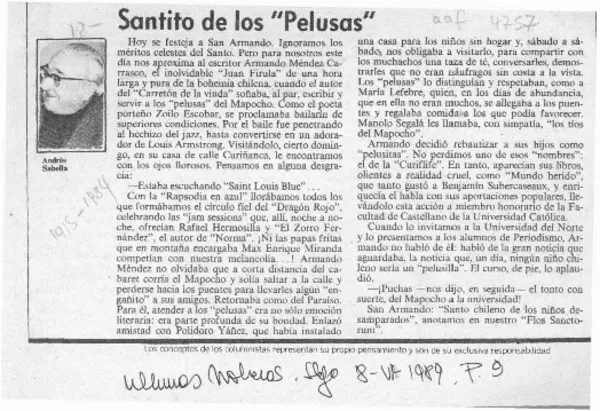 Santito de los "Pelusas"
Andrés
Sabella
Hoy se festeja a San Armando. Ignoramos los
méritos celestes del Santo. Pero para nosotros este
día nos aproxima al escritor Armando Méndez Ca-
rrasco, el inolvidable "Juan Firula" de una hora
larga y pura de la bohemia chilena, cuando el autor
del "Carretón de la viuda" soñaba, al par, escribir y
servir a los "pelusas" del Mapocho. Como el poeta
porteño Zoilo Escobar, se proclamaba bailarín de
superiores condiciones. Por el baile fue penetrando
al hechizo del jazz, hasta convertirse en un adora-
dor de Louis Armstrong. Visitándolo, cierto domin-
go, en su casa de calle Curiñanca, le encontramos
con los ojos llorosos. Pensamos en alguna desgra-
cia:
—Estaba escuchando "Saint Louis Blue"...
Con la "Rapsodia en azul" llorábamos todos los
que formábamos el círculo fiel del "Dragón Rojo",
celebrando las "jam sessions" que, allí, noche a no-
che, ofrecían Rafael Hermosilla y "El Zorro Fer-
nández", el autor de "Norma". ¡Ni las papas fritas
que en montaña encargaba Max Enrique Miranda
competían con nuestra melancolía...! Armando
Méndez no olvidaba que a corta distancia del ca-
baret corría el Mapocho y solía saltar a la calle y
perderse hacia los puentes para llevarles algún "en-
gañito" a sus amigos. Retornaba como del Paraíso.
Para él, atender a los "pelusas" era no sólo emoción
literaria: era parte profunda de su bondad. Enlazó
amistad con Polidoro Yáñez, que había instalado
una casa para los niños sin hogar y, sábado a sá-
bado, nos obligaba a visitarlo, para compartir con
los muchachos una taza de té, conversarles, demos-
trarles que no eran náufragos sin costa a la vista.
Los "pelusas" lo distinguían y respetaban, como a
María Lefebre, quien, en los días de abundancia,
que en ella no eran muchos, se allegaba a los puen-
tes y regalaba comidas los que podía favorecer.
Manolo Segalá les llamaba, con simpatía, "los tíos
del Mapocho".
Armando decidió rebautizar a sus hijos como
"pelusitas". No perdimos uno de esos "nombres":
el de la "Curifife". En tanto, aparecían sus libros,
olientes a realidad cruel, como "Mundo herido",
que tanto gustó a Benjamín Subercaseaux, y enri-
quecía el habla con sus aportaciones populares, lle-
vándolo esta acción a miembro honorario de la Fa-
cultad de Castellano de la Universidad Católica.
Cuando lo invitamos a la Universidad del Norte
y lo presentamos a los alumnos de Periodismo, Ar-
mando no habló de él: habló de la gran noticia que
aguardaba, la noticia que, un día, ningún niño chi-
leno sería un "pelusilla". El curso, de pie, lo aplau-
dió.
—¡Puchas —nos dijo, en seguida— el tonto con
suerte, del Mapocho a la universidad!
San Armando: "Santo chileno de los niños de-
samparados", anotamos en nuestro "Flos Sancto-
rum".
Los conceptos de los columnistas representan su propio pensamiento y son de su exclusiva responsabilidad
Ultimas Noticias, Stgo 8-VI-1989, P. 9